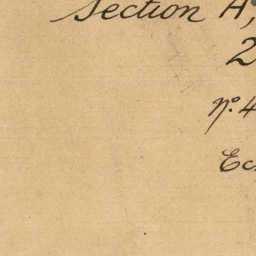 Section A,
2
No. 4
Ec